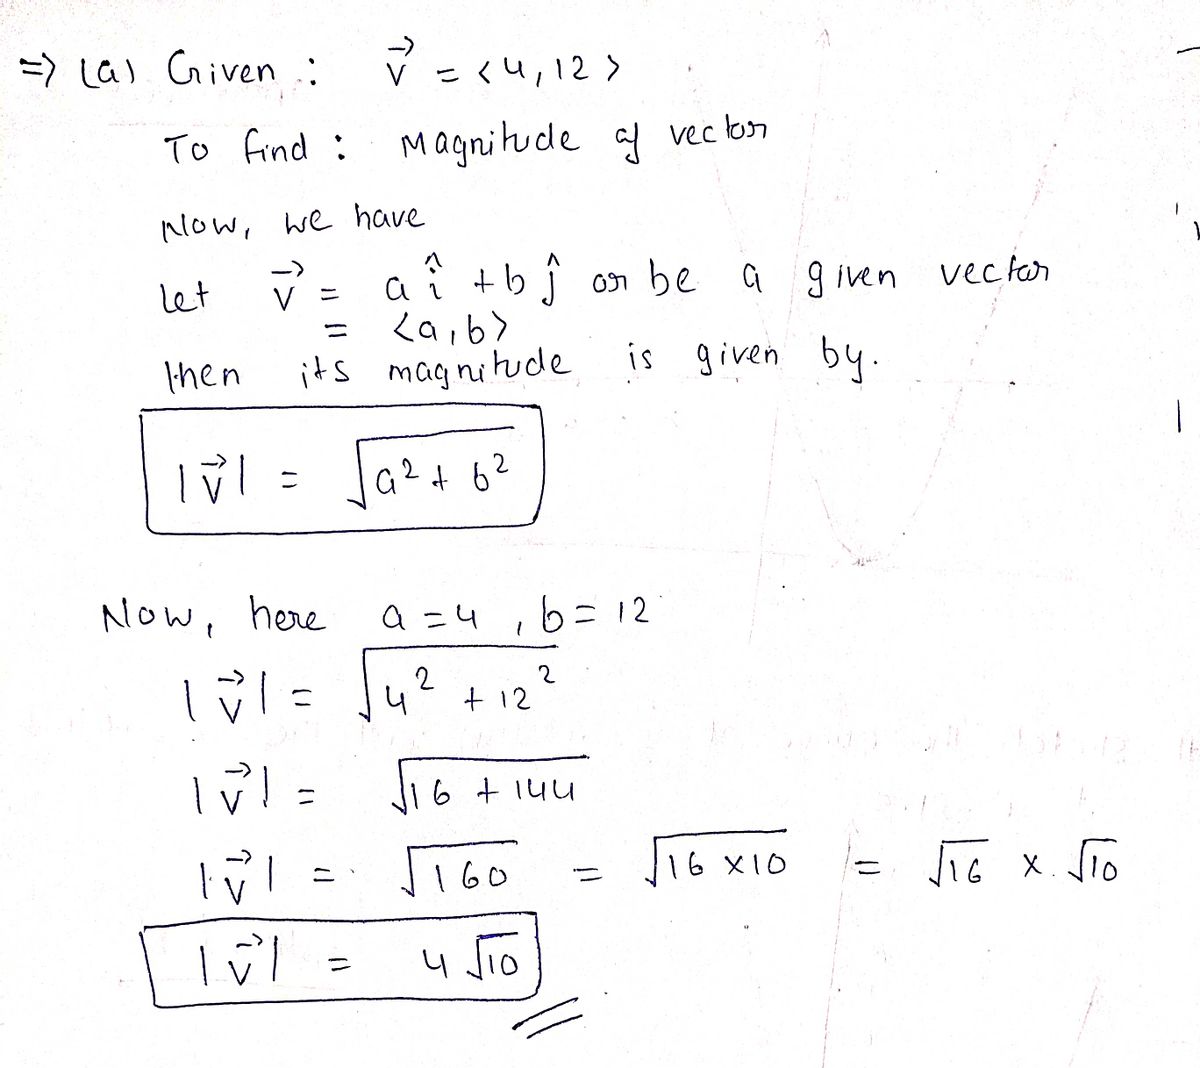 => (a) Given : v⃗ = <4,12>
To find : Magnitude of vector
Now, we have
Let v⃗ = a î + b ĵ or be a given vector
= <a,b>
then its magnitude is given by.
|v⃗| = √(a² + b²)
Now, here a = 4 , b = 12
|v⃗| = √(4² + 12²)
|v⃗| = √(16 + 144)
|v⃗| = √160 = √(16 × 10) = √16 × √10
|v⃗| = 4√10